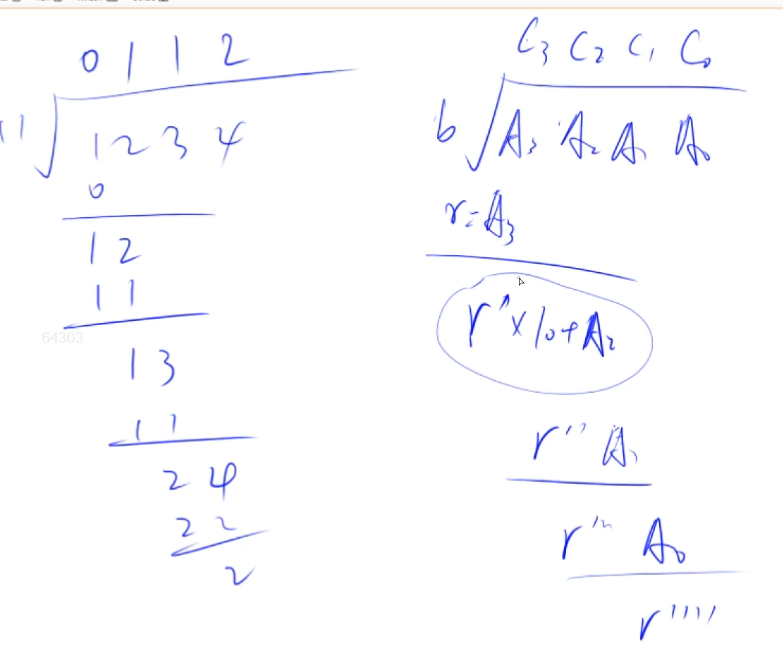 0 1 1 2
11 1 2 3 4
0
1 2
1 1
1 3
1 1
2 4
2 2
2
C₃ C₂ C₁ C₀
b A₃ A₂ A₁ A₀
r=A₃
r'×10+A₂
r'' A₁
r''' A₀
r''''
64303